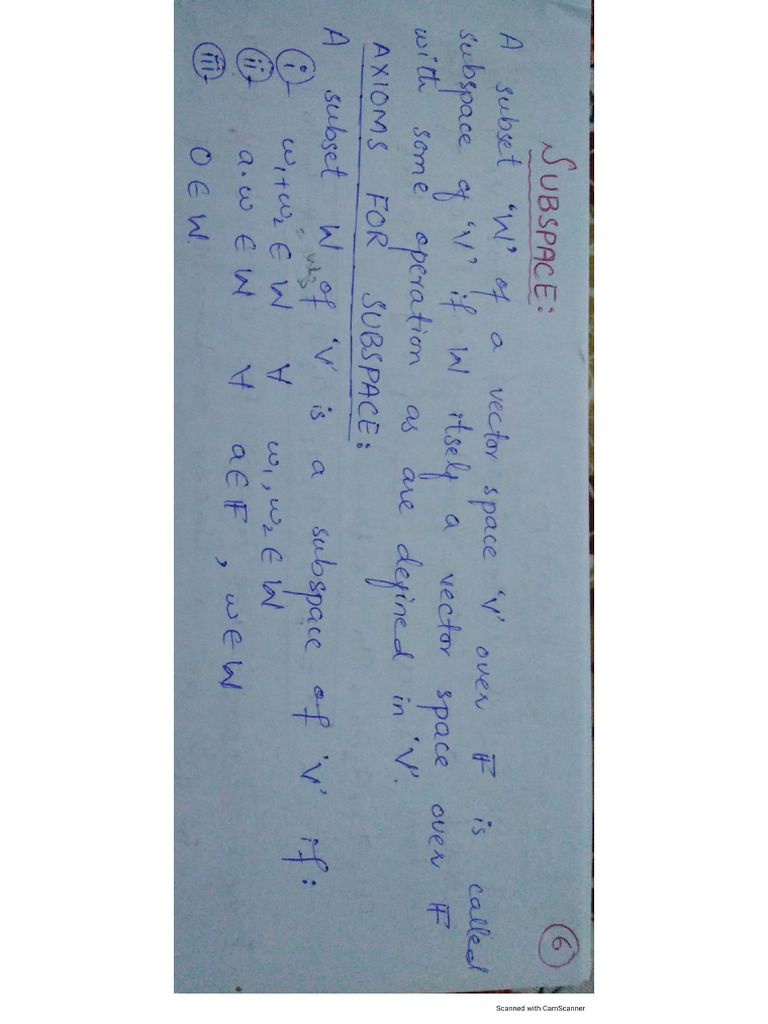 SUBSPACE:
6
A subset 'W' of a vector space 'V' over F is called
subspace of 'V' if W itself a vector space over F
with some operation as are defined in 'V'.
AXIOMS FOR SUBSPACE:
A subset W of 'V' is a subspace of 'V' if:
i w₁+w₂ ∈ W ∀ w₁, w₂ ∈ W
ii a·w ∈ W ∀ a ∈ F, w ∈ W
iii 0 ∈ W.
Scanned with CamScanner